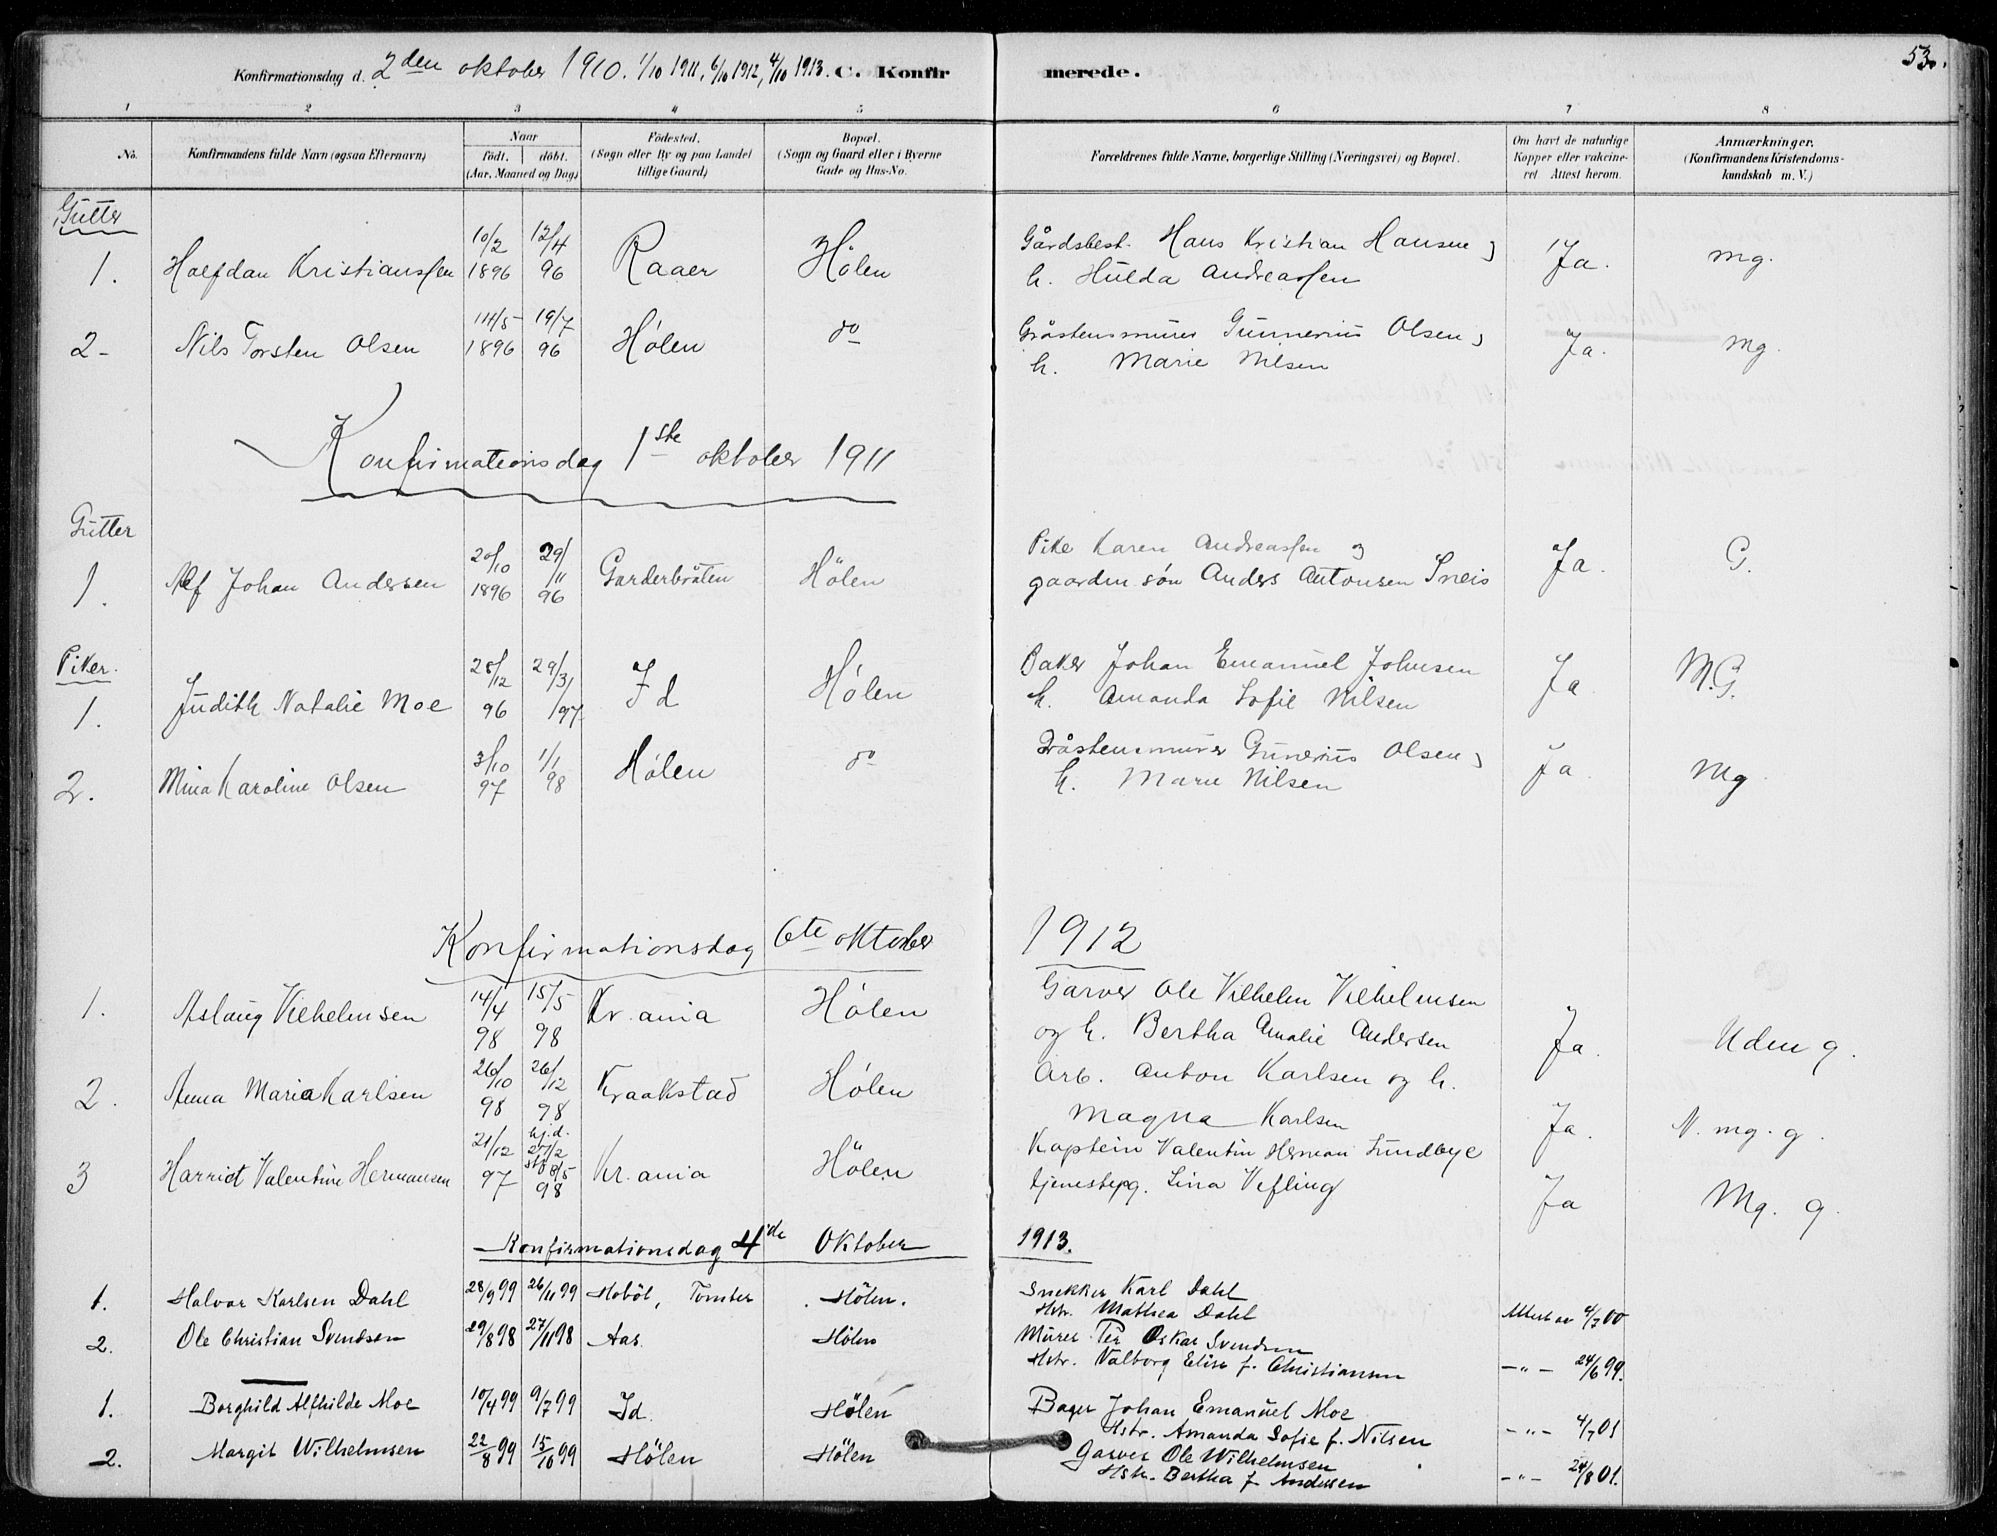 53.
Konfirmationsdag d. 2den oktober 1910. 1/10 1911, 6/10 1912, 4/10 1913. C. Konfirmerede.
1 2 3 4 5 6 7 8
No. Konfirmandens fulde Navn (ogsaa Efternavn) Naar födt. döbt. (Aar, Maaned og Dag) Födested. (Sogn eller By og paa Landet tillige Gaard) Bopæl. (Sogn og Gaard eller i Byerne Gade og Hus-No. Forældrenes fulde Navne, borgerlige Stilling (Næringsvei) og Bopæl. Om havt de naturlige Kopper eller vakcineret. Attest herom. Anmærkninger. (Konfirmandens Kristendomskundskab m. V.)
Gutter
1. Halfdan Kristianssen 10/2 1896 12/4 96 Raaer Hölen Gårdsbest. Hans Kristian Hansen og
h. Hulda Andreassen Ja. mg.
2- Nils Torsten Olsen 14/5 1896 19/7 96 Hölen do Gråstensmurer Gunnerius Olsen og
h. Marie Nilsen Ja. mg.
Konfirmationsdag 1ste oktober 1911
Gutter
1. Alf Johan Andersen 20/10 1896 29/11 96 Garderbråten Hölen Pike Karen Andreassen og
gaardm. sön Anders Antonsen Sneis Ja. G.
Piker.
1. Judith Natalie Moe 28/12 96 29/3 97 Id Hölen Baker Johan Emanuel Johnsen
h. Amanda Sofie Nilsen Ja M.G.
2. Mina Karoline Olsen 3/10 97 1/1 98 Hölen do Gråstensmurer Gunerius Olsen og
h. Marie Nilsen Ja Mg
Konfirmationsdag 6te oktober 1912
1. Aslaug Vilhelmsen 14/4 98 15/5 98 Kr.ania Hölen Garver Ole Vilhelm Vilhelmsen
og h. Bertha Amalie Andersen Ja. Uden g.
2. Anna Maria Karlsen 26/10 98 26/12 98 Kraakstad Hölen Arb. Anton Karlsen og h.
Magna Karlsen Ja. N. mg. g.
3 Harriet Valentine Hermansen 21/12 97 hj.d. 27/2 stf 8/5 98 Kr.ania Hölen Kaptein Valentin Herman Lundbye
tjenestepg. Lina Vefling Ja Mg. g.
Konfirmationsdag 4de Oktober 1913.
1. Halvor Karlsen Dahl 28/9 99 26/11 99 Hoböl, Tomter Hölen. Snekker Karl Dahl
Hstr. Mathea Dahl Attest av 4/7 00
2. Ole Christian Svendsen 29/8 98 27/11 98 Aas Hölen Murer Per Oskar Svendsen
Hstr. Valborg Elise f. Christiansen -"- 24/6 99.
1. Borghild Alfhilde Moe 10/4 99 9/7 99 Id. Hölen Bager Johan Emanuel Moe
Hstr. Amanda Sofie f. Nilsen -"- 4/7 01
2. Margit Wilhelmsen 22/8 99 15/10 99 Hölen Hölen Garver Ole Wilhelmsen
Hstr. Bertha f. Andersen -"- 24/8 01.